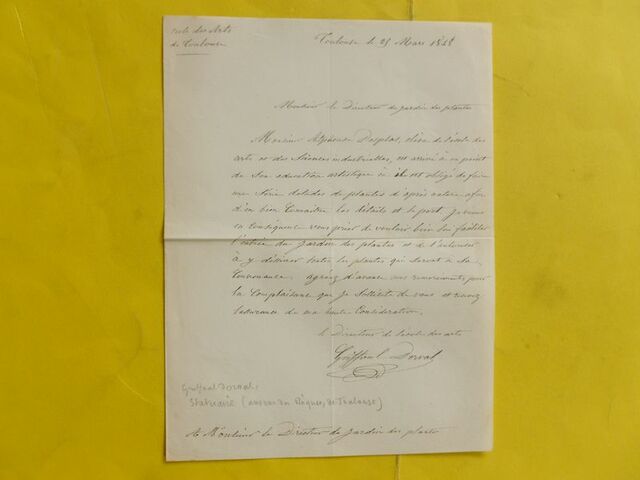 Ecole des Arts
de Toulouse
Toulouse le 25 Mars 1858
Monsieur le Directeur du jardin des plantes
Monsieur Alphonse Desplas, élève de l'école des
arts et des Sciences industrielles, est arrivé à un point
de son education artistique où il est obligé de faire
une Série d'études de plantes d'après nature afin
d'en bien Connaître les détails et le port. Je viens
en Conséquence vous prier de vouloir bien lui faciliter
l'entrée du jardin des plantes et de l'autoriser
à y dessiner toutes les plantes qui seront à sa
Convenance. agréez d'avance mes remerciements pour
la Complaisance que je Sollicite de vous et recevez
l'assurance de ma haute Considération.
le Directeur de l'école des arts
Griffoul Dorval
Griffoul Dorval.
Statuaire (du Musée, de Toulouse)
A Monsieur le Directeur du Jardin des plantes